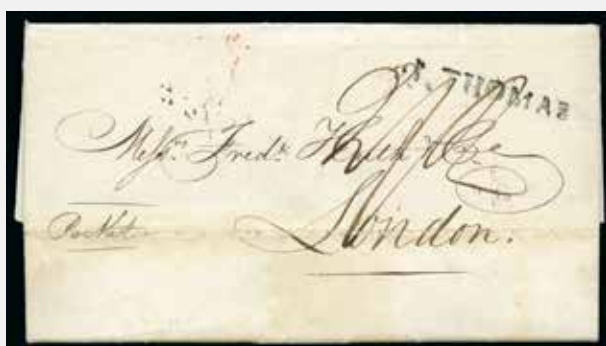 THOMAS
Messrs. Fredk. & Co
Packet
London.